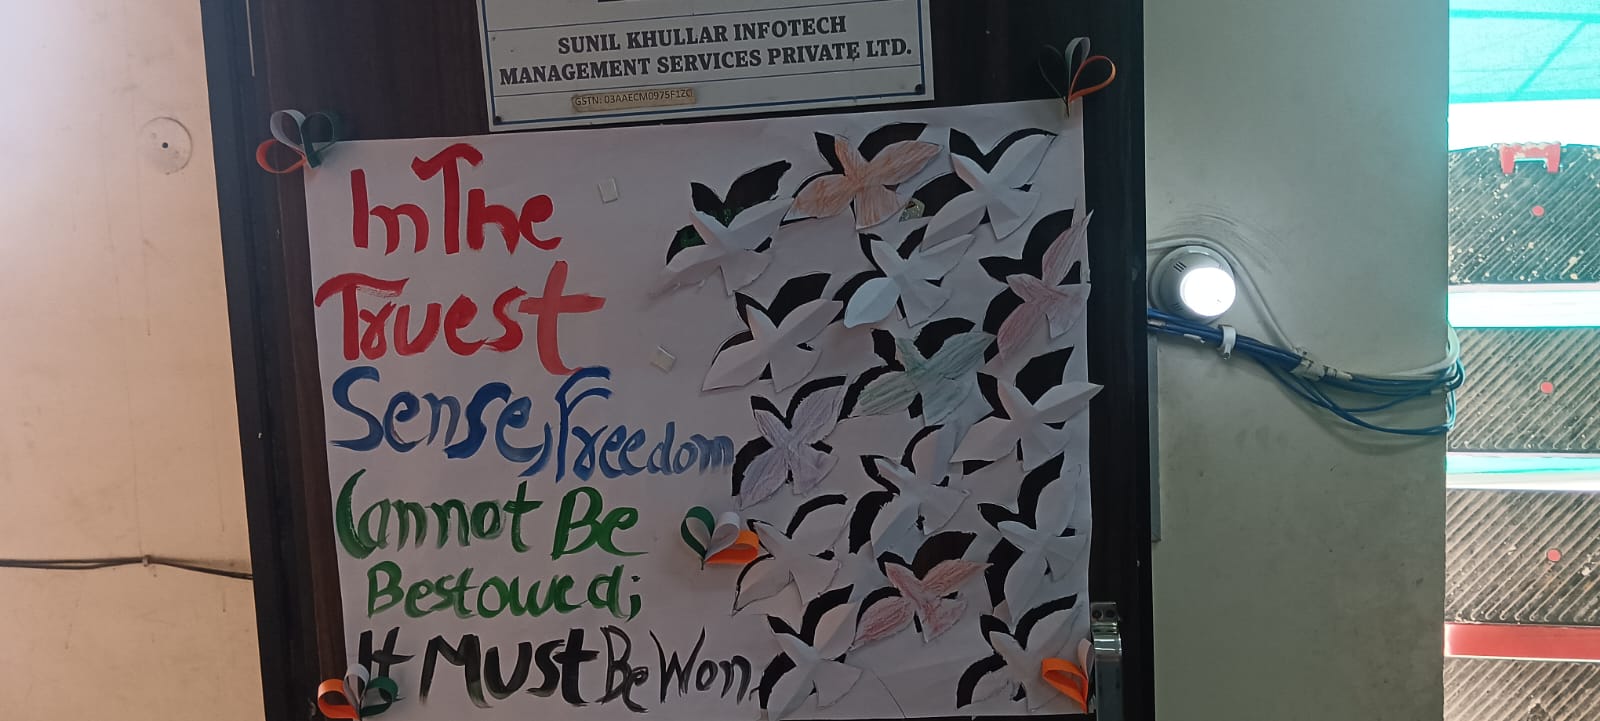 SUNIL KHULLAR INFOTECH
MANAGEMENT SERVICES PRIVATE LTD.
GSTN: 03AAECM0975F1ZC
In The
Truest
Sense, Freedom
Cannot Be
Bestowed;
It Must Be Won